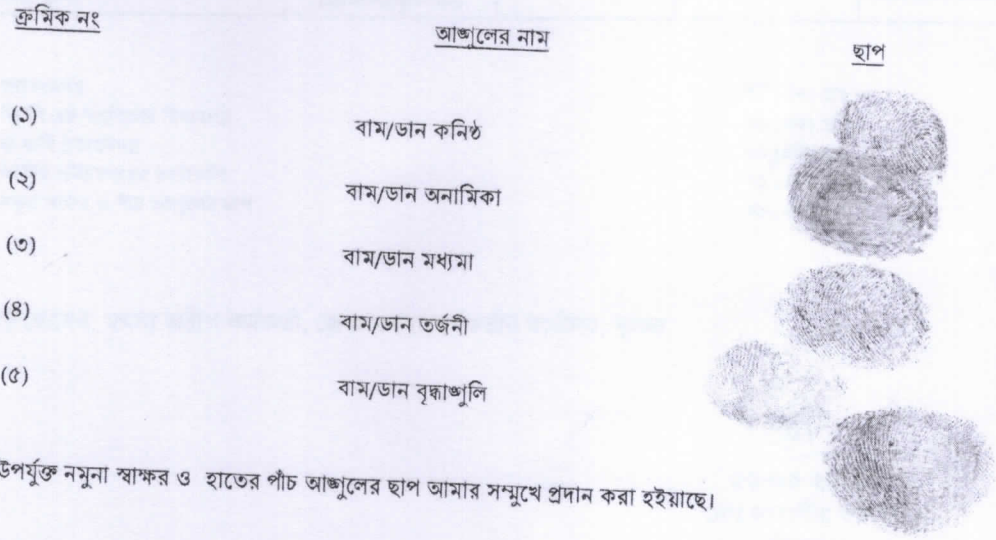 ক্রমিক নং আঙ্গুলের নাম ছাপ
(১) বাম/ডান কনিষ্ঠ
(২) বাম/ডান অনামিকা
(৩) বাম/ডান মধ্যমা
(৪) বাম/ডান তর্জনী
(৫) বাম/ডান বৃদ্ধাঙ্গুলি
উপর্যুক্ত নমুনা স্বাক্ষর ও হাতের পাঁচ আঙ্গুলের ছাপ আমার সম্মুখে প্রদান করা হইয়াছে।